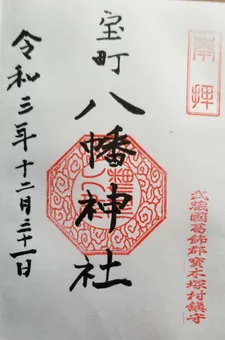 奉拝
武蔵國葛飾郡寳木塚村鎮守
宝町
八幡神社
令和三年十二月三十一日